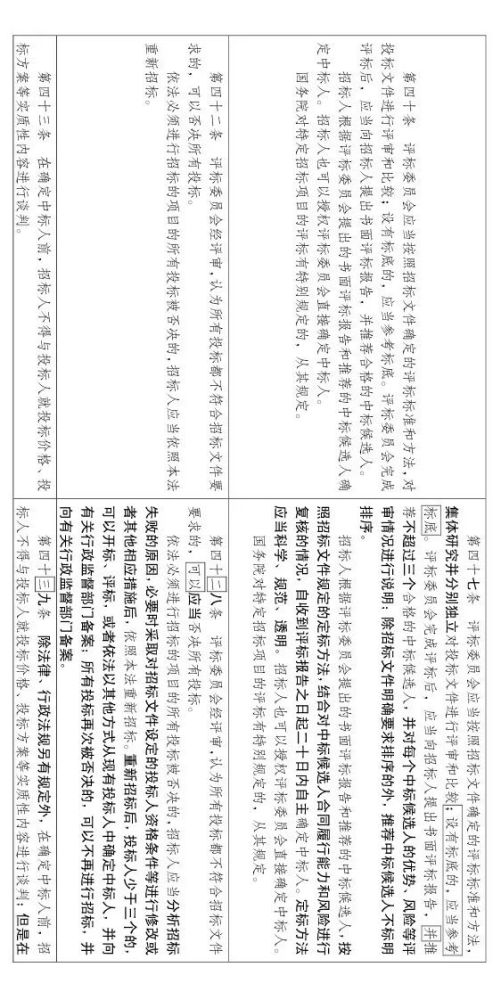 第四十条　评标委员会应当按照招标文件确定的评标标准和方法，对
投标文件进行评审和比较；设有标底的，应当参考标底。评标委员会完成
评标后，应当向招标人提出书面评标报告，并推荐合格的中标候选人。
招标人根据评标委员会提出的书面评标报告和推荐的中标候选人确
定中标人。招标人也可以授权评标委员会直接确定中标人。
国务院对特定招标项目的评标有特别规定的，从其规定。
第四十七条　评标委员会应当按照招标文件确定的评标标准和方法，
集体研究并分别独立对投标文件进行评审和比较；设有标底的，应当参考
标底。评标委员会完成评标后，应当向招标人提出书面评标报告，并推
荐不超过三个合格的中标候选人，并对每个中标候选人的优势、风险等评
审情况进行说明；除招标文件明确要求排序的外，推荐中标候选人不标明
排序。
招标人根据评标委员会提出的书面评标报告和推荐的中标候选人，按
照招标文件规定的定标方法，结合对中标候选人合同履行能力和风险进行
复核的情况，自收到评标报告之日起二十日内自主确定中标人。定标方法
应当科学、规范、透明。招标人也可以授权评标委员会直接确定中标人。
国务院对特定招标项目的评标有特别规定的，从其规定。
第四十二条　评标委员会经评审，认为所有投标都不符合招标文件要
求的，可以否决所有投标。
依法必须进行招标的项目的所有投标被否决的，招标人应当依照本法
重新招标。
第四十二八条　评标委员会经评审，认为所有投标都不符合招标文件
要求的，可以应当否决所有投标。
依法必须进行招标的项目的所有投标被否决的，招标人应当分析招标
失败的原因，必要时采取对招标文件设定的投标人资格条件等进行修改或
者其他相应措施后，依照本法重新招标。重新招标后，投标人少于三个的，
可以开标、评标，或者依法以其他方式从现有投标人中确定中标人，并向
有关行政监督部门备案；所有投标再次被否决的，可以不再进行招标，并
向有关行政监督部门备案。
第四十三条　在确定中标人前，招标人不得与投标人就投标价格、投
标方案等实质性内容进行谈判。
第四十三九条　除法律、行政法规另有规定外，在确定中标人前，招
标人不得与投标人就投标价格、投标方案等实质性内容进行谈判；但是在